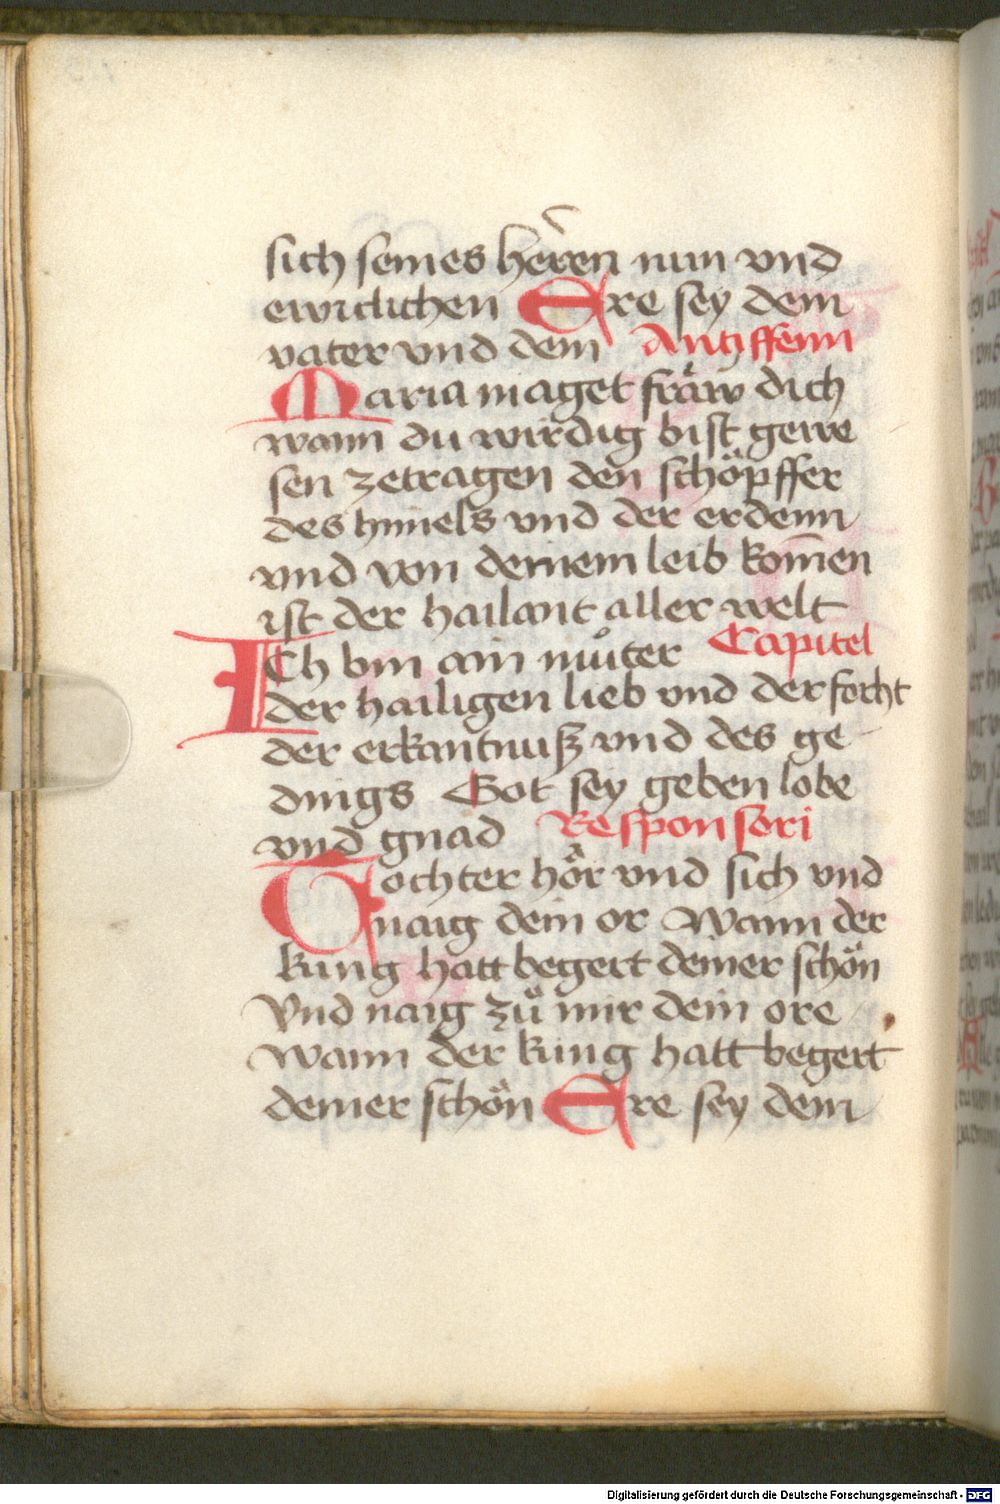 sich seines herren nun vnd
ewiclichen Ere sey dem
vater vnd dem Antiffenn
Maria maget fräw dich
wann du wirdig bist gewe
sen zetragen den schöpffer
des himels vnd der erdenn
vnd von deinem leib kom̄en
ist der hailant aller welt
Capitel
ICh bin ain můter
der hailigen lieb vnd der forcht
der erkantnuß vnd des ge
dings Got sey geben lobe
vnd gnad Responsori
Tochter hör vnd sich vnd
naig dein or Wann der
kung hatt begert deiner schön
Vnd naig zů mir dein ore
wann der kung hatt begert
deiner schön Ere sey dem
Digitalisierung gefördert durch die Deutsche Forschungsgemeinschaft - DFG